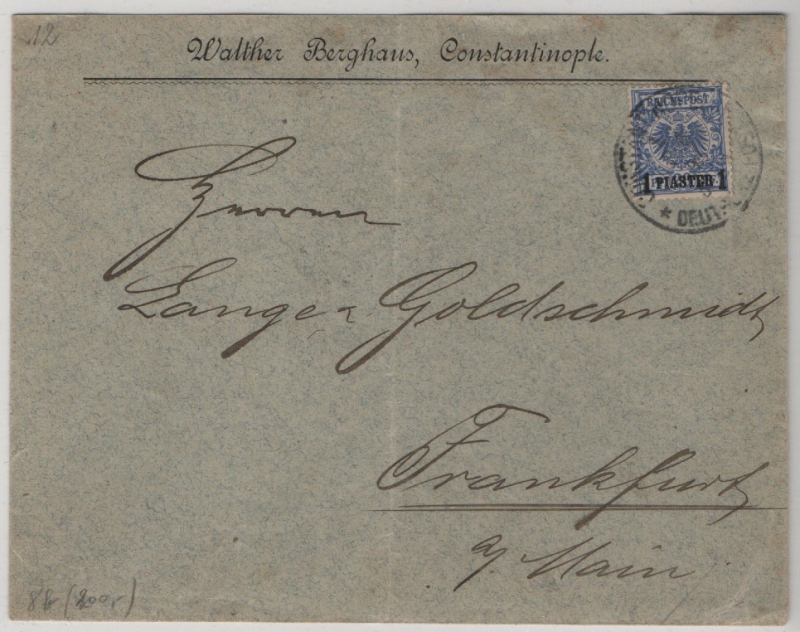 12
Walther Berghaus, Constantinople.
REICHSPOST
1 PIASTER 1
Herren
Lange & Goldschmidt
Frankfurt
a/Main